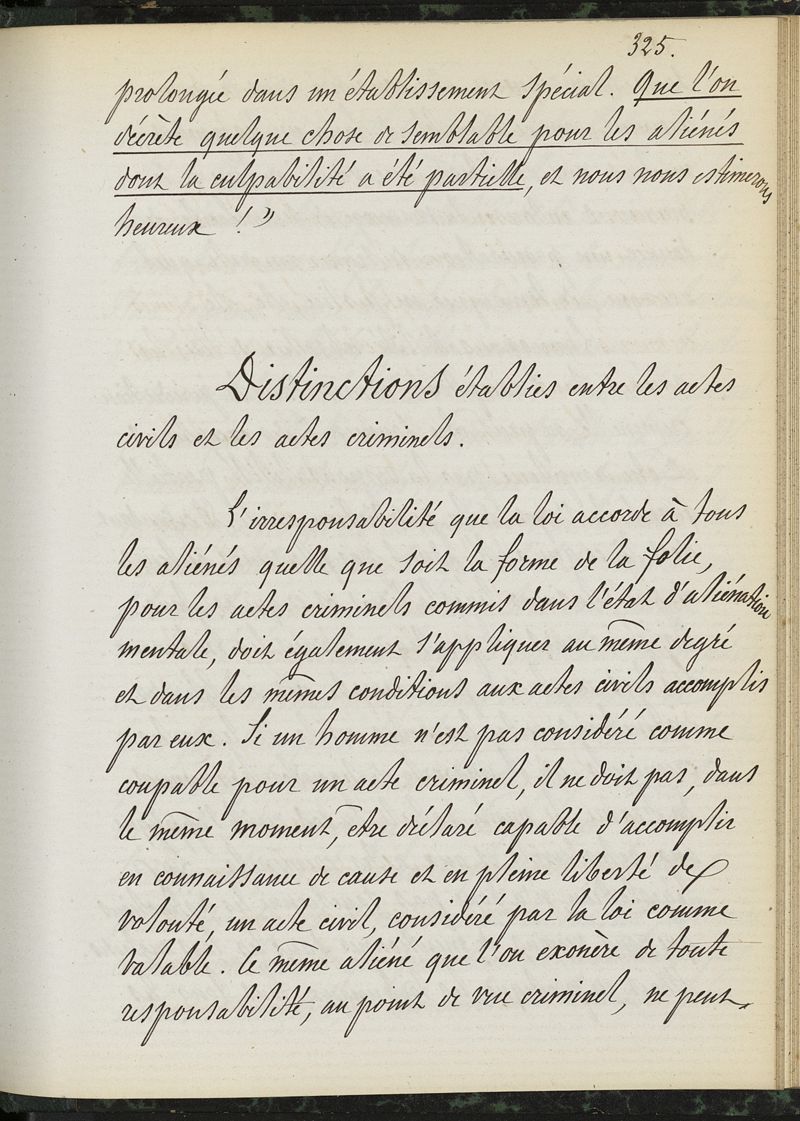 325.
prolongée dans un établissement spécial. Que l'on
décrète quelque chose de semblable pour les aliénés
dont la culpabilité a été partielle, et nous nous estimerons
heureux ! »
Distinctions établies entre les actes
civils et les actes criminels.
L'irresponsabilité que la loi accorde à tous
les aliénés quelle que soit la forme de la folie,
pour les actes criminels commis dans l'état d'aliénation
mentale, doit également s'appliquer au même degré
et dans les mêmes conditions aux actes civils accomplis
par eux. Si un homme n'est pas considéré comme
coupable pour un acte criminel, il ne doit pas, dans
le même moment, etre déclaré capable d'accomplir
en connaissance de cause et en pleine liberté de
volonté, un acte civil, considéré par la loi comme
valable. Ce même aliéné que l'on exonère de toute
responsabilité, au point de vue criminel, ne peut